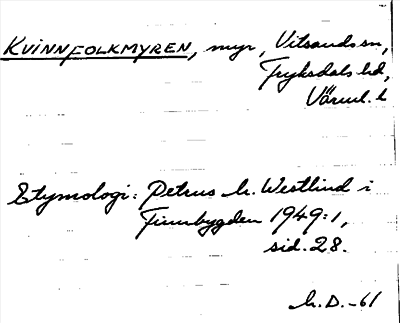 KVINNFOLKMYREN, myr, Vitsands sn,
Fryksdals hd,
Värml. l.
Etymologi: Petrus h. Westlind i
Finnbygden 1949:1,
sid. 28.
h. D. -61